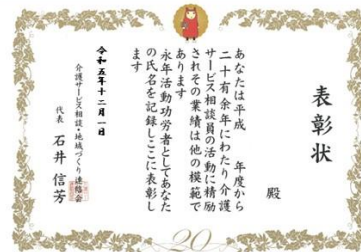 表彰状
殿
あなたは平成　年度から
二十有余年にわたり介護
サービス相談員の活動に精励
されその業績は他の模範で
あります
永年活動功労者としてあなた
の氏名を記録しここに表彰し
ます
令和五年十二月一日
介護サービス相談・地域づくり連絡会
代表　石井信芳
20